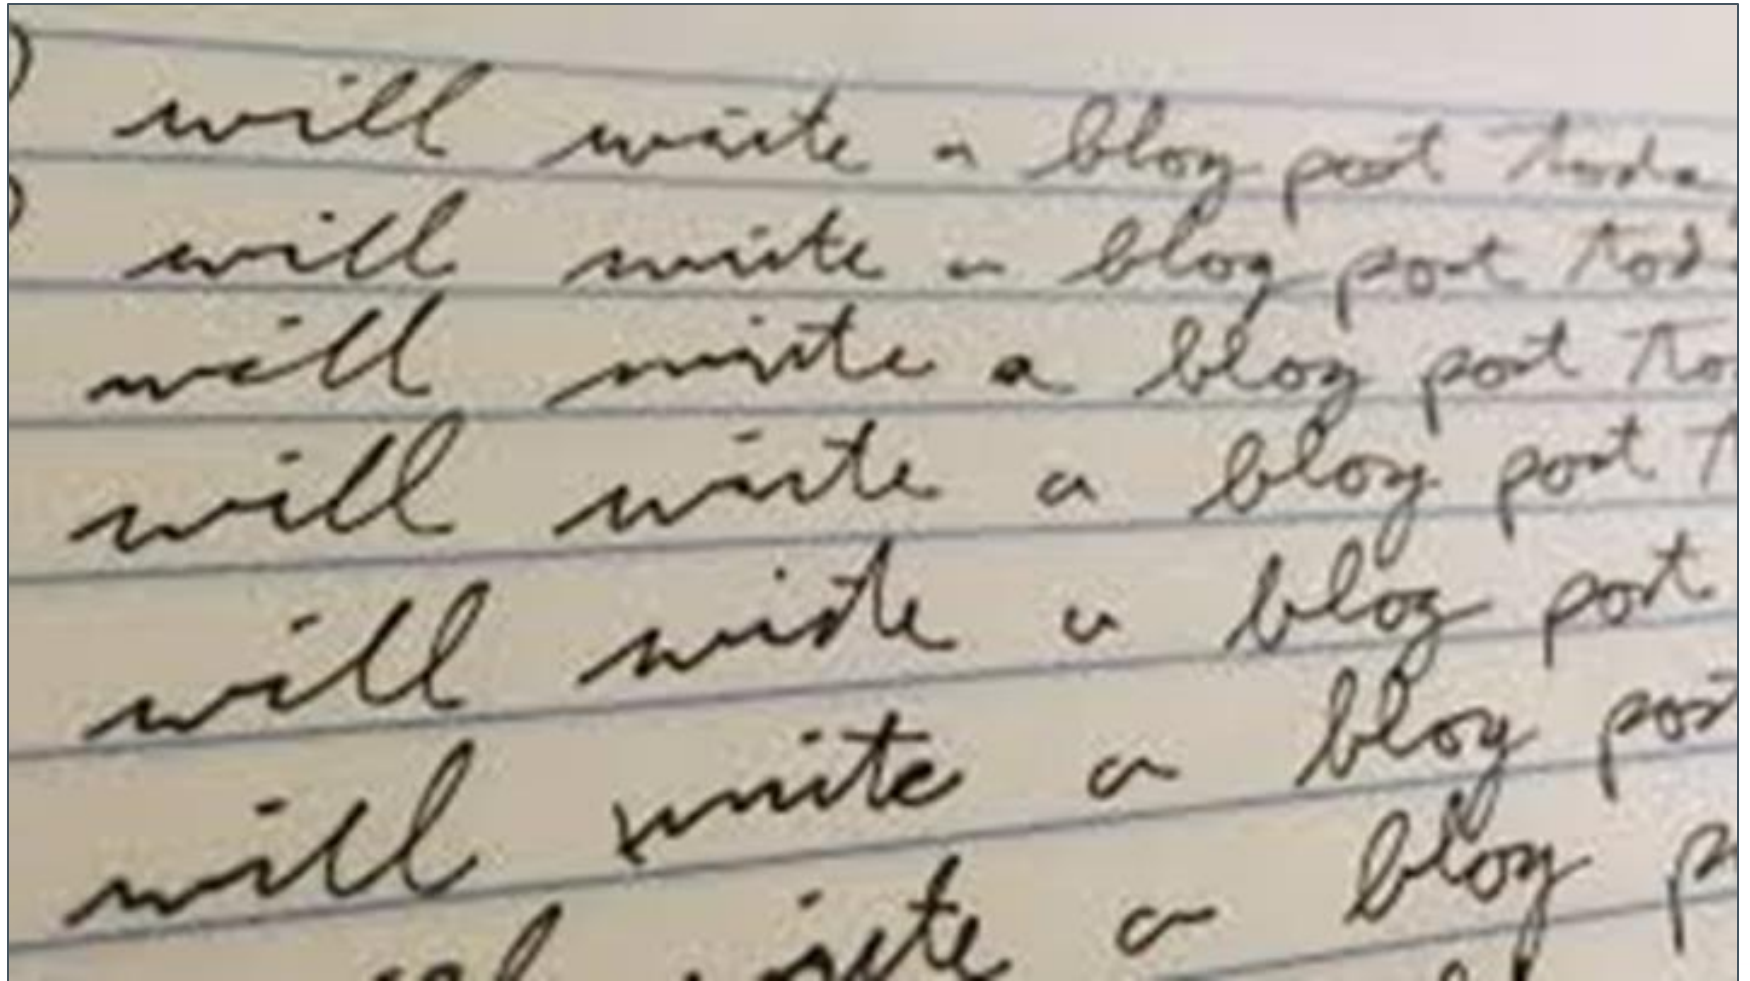 will write a blog post toda
will write a blog post tod
will write a blog post to
will write a blog post t
will write a blog post
will write a blog post
will write a blog p